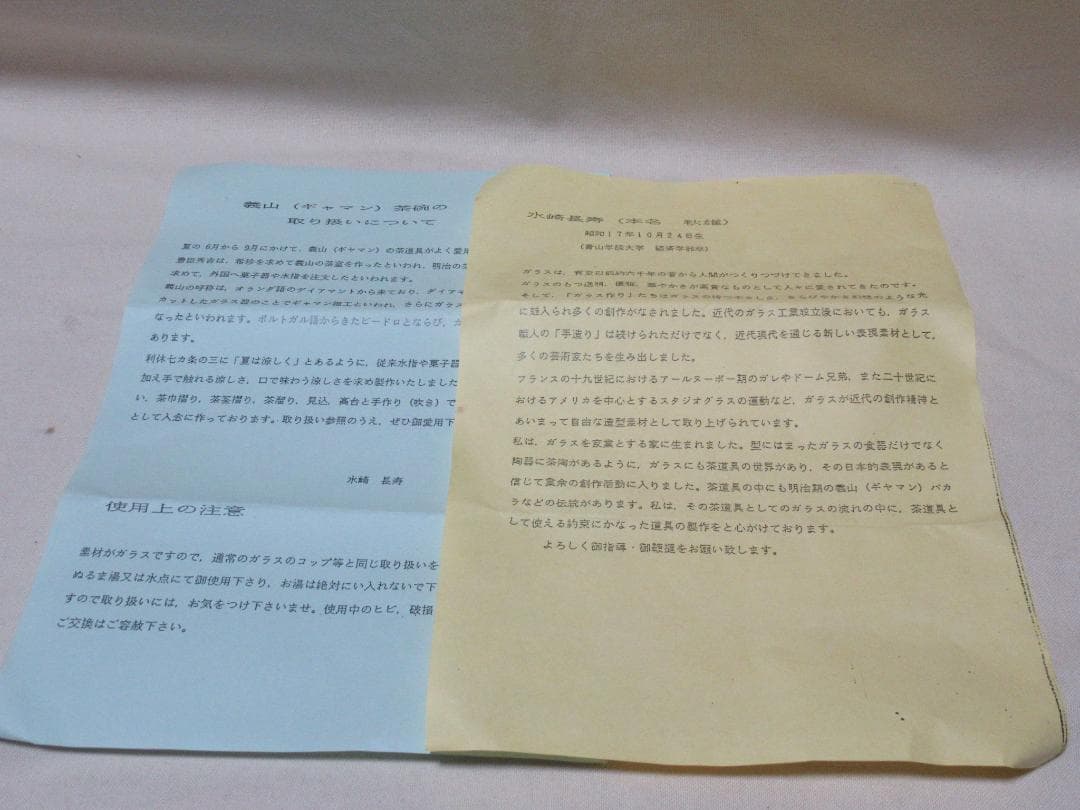 義山（ギヤマン）茶碗の
取り扱いについて
夏の6月から9月にかけて、義山（ギヤマン）の茶道具がよく愛用
豊臣秀吉は、希珍を求めて義山の茶室を作ったといわれ、明治の茶
求めて、外国へ菓子器や水指を注文したといわれます。
義山の呼称は、オランダ語のデイアマントから来ており、ダイアモ
カットしたガラス器のことでギヤマン細工といわれ、さらにガラス
なったといわれます。ポルトガル語からきたビードロとならび、カ
あります。
利休七カ条の三に「夏は涼しく」とあるように、従来水指や菓子器
加え手で触れる涼しさ、口で味わう涼しさを求め製作いたしました
い、茶巾摺り、茶筌摺り、茶溜り、見込、高台と手作り（吹き）で
として入念に作っております。取り扱い参照のうえ、ぜひ御愛用下
水崎 長寿
使用上の注意
素材がガラスですので、通常のガラスのコップ等と同じ取り扱いを
ぬるま湯又は水点にて御使用下さり、お湯は絶対にい入れないで下
すので取り扱いには、お気をつけ下さいませ。使用中のヒビ、破損
ご交換はご容赦下さい。
水崎長寿（本名 秋雄）
昭和17年10月24日生
（青山学院大学 経済学部卒）
ガラスは、有史以前約六千年の昔から人間がつくりつづけてきました。
ガラスのもつ透明、優雅、艶やかさが高貴なものとして人々に愛されてきたのです。
そして、「ガラス作り」たちはガラスの
に魅入られ多くの創作がなされました。近代のガラス工業成立後においても、ガラス
職人の「手造り」は続けられただけでなく、近代現代を通じる新しい表現素材として、
多くの芸術家たちを生み出しました。
フランスの十九世紀におけるアールヌーボー期のガレやドーム兄弟、また二十世紀に
おけるアメリカを中心とするスタジオグラスの運動など、ガラスが近代の創作精神と
あいまって自由な造型素材として取り上げられています。
私は、ガラスを家業とする家に生まれました。型にはまったガラスの食器だけでなく
陶器に茶陶があるように、ガラスにも茶道具の世界があり、その日本的表現があると
信じて童余の創作活動に入りました。茶道具の中にも明治期の義山（ギヤマン）バカ
ラなどの伝統があります。私は、その茶道具としてのガラスの流れの中に、茶道具と
して使える約束にかなった道具の製作をと心がけております。
よろしく御指導・御鞭撻をお願い致します。